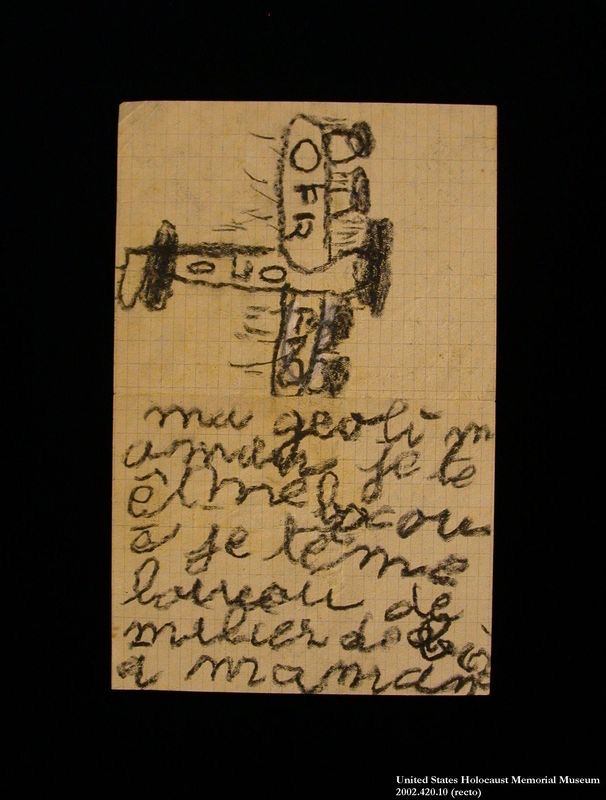 OFR
ma geoli m
aman je te
êlme bocou
é je têmе
boucou de
milier de
a maman
United States Holocaust Memorial Museum
2002.420.10 (recto)